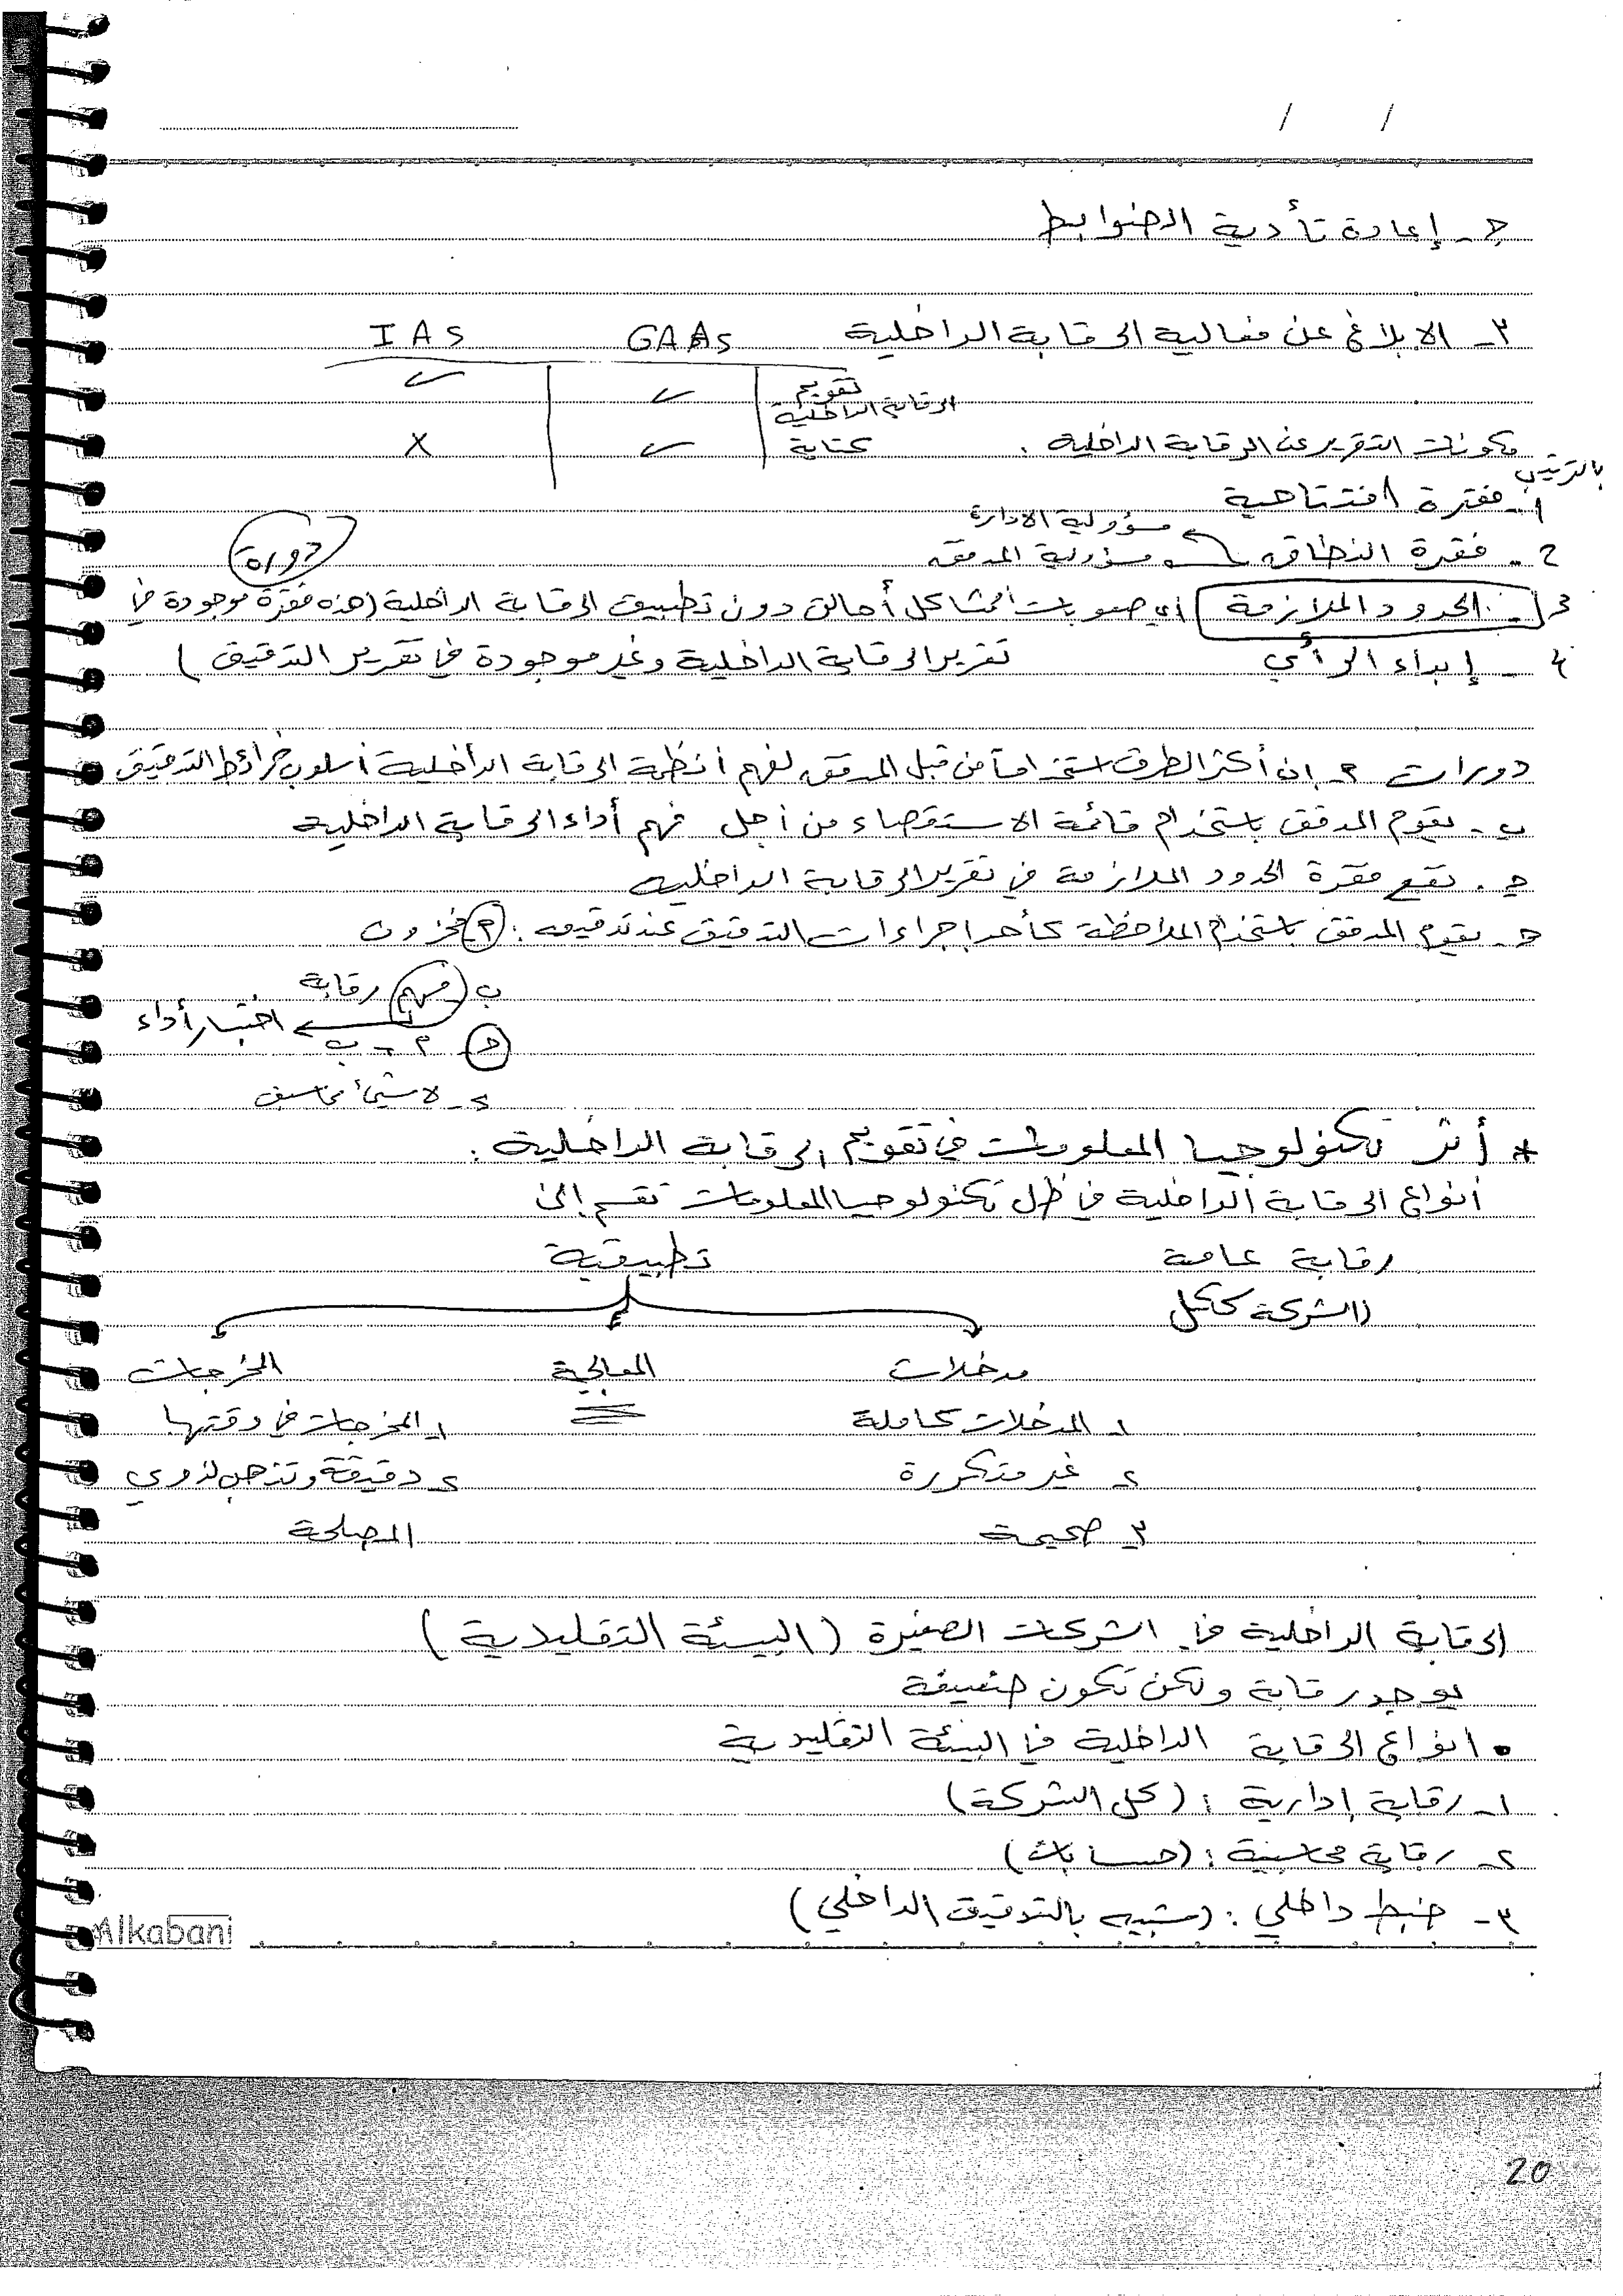 / /
ج - إعادة تأدية الضوابط
٣ - الابلاغ عن فعالية الرقابة الداخلية GAAs IAs
تقويم الرقابة الداخلية ✓ ✓
مكونات التقرير عن الرقابة الداخلية : كتابة ✓ X
بالترتيب
1 - فقرة افتتاحية
2 - فقرة النطاق مسؤولية الادارة
مسؤولية المدقق
دورة
3 - الحدود الملازمة أي صعوبات أو مشاكل أحالت دون تطبيق الرقابة الداخلية (هذه فقرة موجودة في
تقرير الرقابة الداخلية وغير موجودة في تقرير التدقيق)
4 - إبداء الرأي
دورات م - إن أكثر الطرق استخداماً من قبل المدقق لفهم أنظمة الرقابة الداخلية أسلوب خرائط التدقيق
ب - يقوم المدقق باستخدام قائمة الاستقصاء من أجل فهم أداء الرقابة الداخلية
ج - تقع فقرة الحدود الملازمة في تقرير الرقابة الداخلية
ج - يقوم المدقق باستخدام الملاحظة كأحد إجراءات التدقيق عند تدقيقه : م مخزون
ب فهم رقابة
اختبار أداء
ج م - ب
د - لا شيء مما سبق
* أثر تكنولوجيا المعلومات في تقويم الرقابة الداخلية :
أنواع الرقابة الداخلية في ظل تكنولوجيا المعلومات تقسم إلى
رقابة عامة تطبيقية
(الشركة ككل
مدخلات المعالجة المخرجات
1 - المدخلات كاملة 1 - المخرجات في وقتها
2 - غير متكررة 2 - دقيقة وتذهب لذوي
٣ - صحيحة المصلحة
الرقابة الداخلية في الشركات الصغيرة (البيئة التقليدية)
يوجد رقابة ولكن تكون ضعيفة
• انواع الرقابة الداخلية في البيئة التقليدية
1 - رقابة إدارية : (كل الشركة)
2 - رقابة محاسبية : (حسابات)
٣ - ضبط داخلي : (شبيه بالتدقيق الداخلي)
Alkabani
20